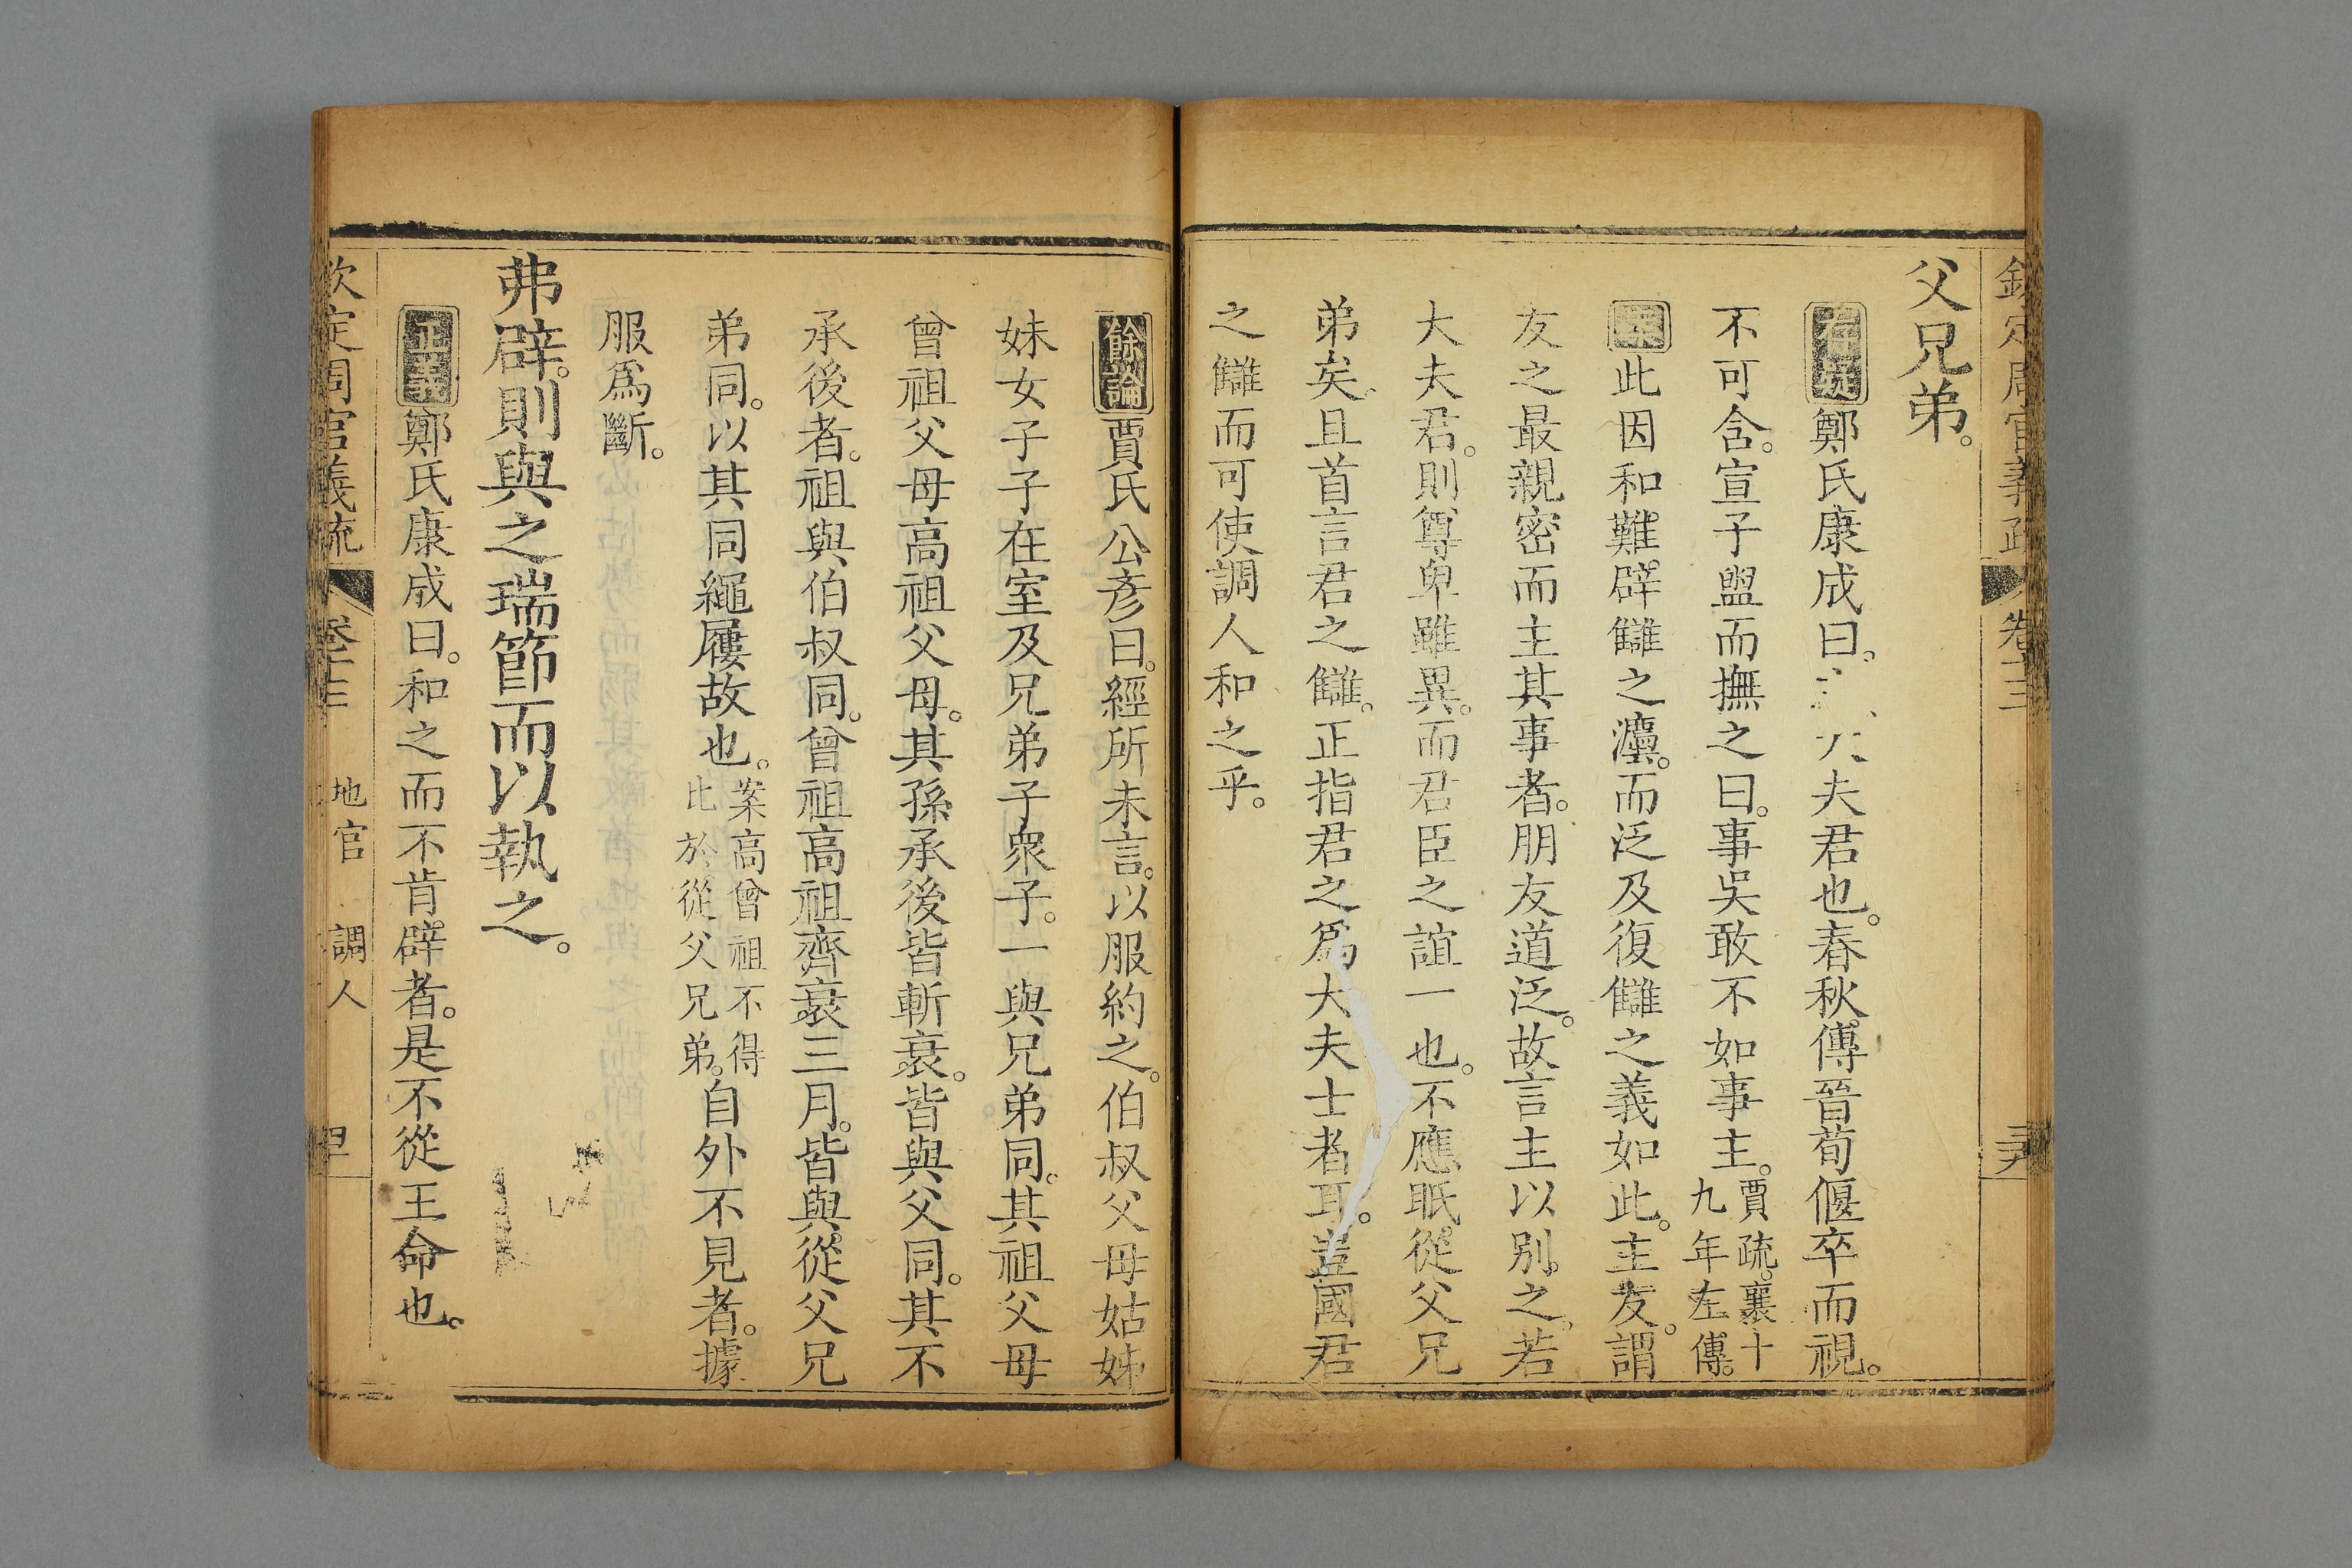 欽定周官義疏 卷十三
父兄弟。
存疑鄭氏康成曰。大夫君也。春秋傳晉荀偃卒而視。
不可含。宣子盥而撫之曰。事吳敢不如事主。賈疏。襄十九年左傳。
案此因和難。辟讎之灋。而泛及復讎之義如此。主友。謂
友之最親密而主其事者。朋友道泛。故言主以別之。若
大夫君。則尊卑雖異。而君臣之誼一也。不應眡從父兄
弟矣。且首言君之讎。正指君之爲大夫士者耳。豈國君
之讎而可使調人和之乎。
餘論賈氏公彥曰。經所未言。以服約之。伯叔父母姑姊
妹女子子在室及兄弟子衆子。一與兄弟同。其祖父母
曾祖父母高祖父母。其孫承後皆斬衰。皆與父同。其不
承後者。祖與伯叔同。曾祖高祖齊衰三月。皆與從父兄
弟同。以其同繩屨故也。案高曾祖不得比於從父兄弟。自外不見者。據
服爲斷。
弗辟。則與之瑞節而以執之。
正義鄭氏康成曰。和之而不肯辟者。是不從王命也。
欽定周官義疏 卷十三 地官 調人